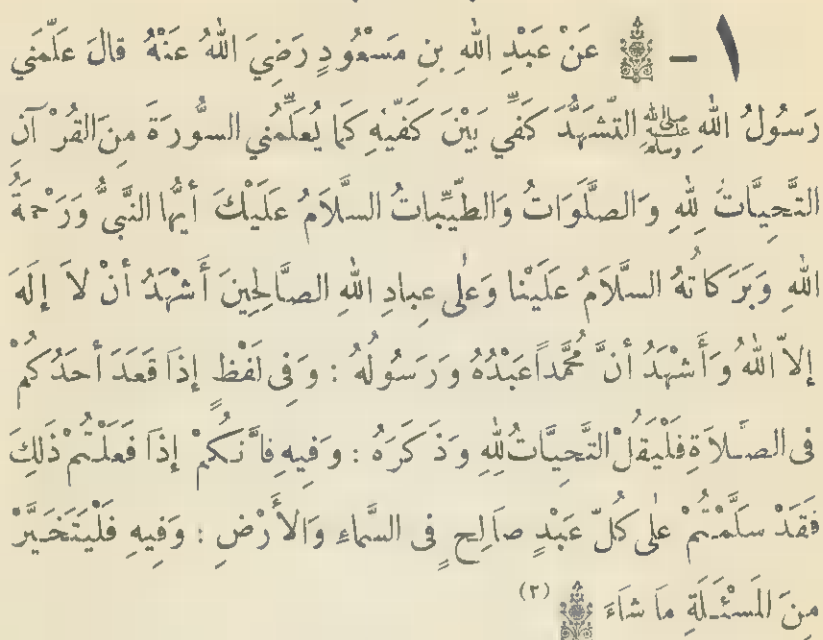 ١ - عَنْ عَبْدِ اللهِ بنِ مَسْعُودٍ رَضِيَ اللهُ عَنْهُ قالَ عَلَّمَني
رَسُولُ اللهِ ﷺ التَّشَهُّدَ كَفِّي بَيْنَ كَفَّيْهِ كَمَا يُعَلِّمُني السُّورَةَ مِنَ القُرْآنِ
التَّحِيَّاتُ لِلهِ وَالصَّلَوَاتُ وَالطَّيِّباتُ السَّلَامُ عَلَيْكَ أيُّهَا النَّبيُّ وَرَحْمَةُ
اللهِ وَبَرَكَاتُهُ السَّلَامُ عَلَيْنَا وَعَلَى عِبادِ اللهِ الصَّالِحِينَ أَشْهَدُ أنْ لاَ إلَهَ
إلاّ اللهُ وَأَشْهَدُ أنَّ مُحَمَّداً عَبْدُهُ وَرَسُولُهُ : وَفي لَفْظٍ إذَا قَعَدَ أحَدُكُمْ
في الصَّلاَةِ فَلْيَقُلْ التَّحِيَّاتُ لِلهِ وَذَكَرَهُ : وَفيهِ فإنَّكُمْ إذَا فَعَلْتُمْ ذَلِكَ
فَقَدْ سَلَّمْتُمْ عَلَى كُلّ عَبْدٍ صَالِحٍ في السَّماءِ وَالأَرْضِ : وَفيهِ فَلْيَتَخَيَّرْ
مِنَ المَسْئَلَةِ مَا شاءَ (٢)